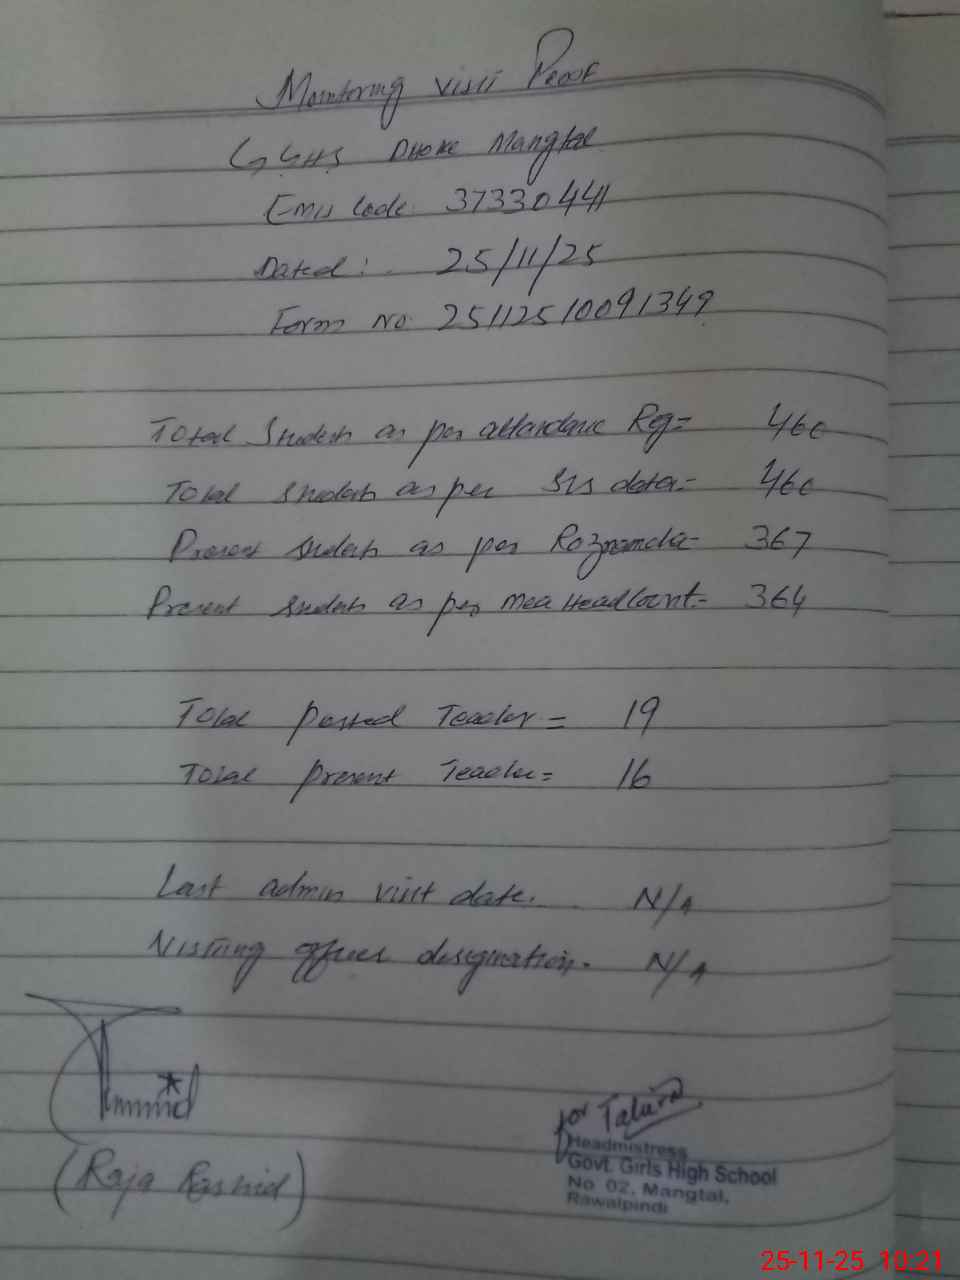 Monitoring visit Proof
GGHS Dhoke Mangtal
Emis Code: 37330441
Dated: 25/11/25
Form No: 25112510091349
Total Students as per attendance Reg= 460
Total Students as per SIS data= 460
Present students as per Roznamcha= 367
Present students as per Mea HeadCount= 364
Total posted Teacher = 19
Total present Teacher= 16
Last admin visit date. N/A
Visiting officer designation. N/A
(Raja Rashid)
for Tahira
Headmistress
Govt. Girls High School
No 02, Mangtal,
Rawalpindi
25-11-25 10:21